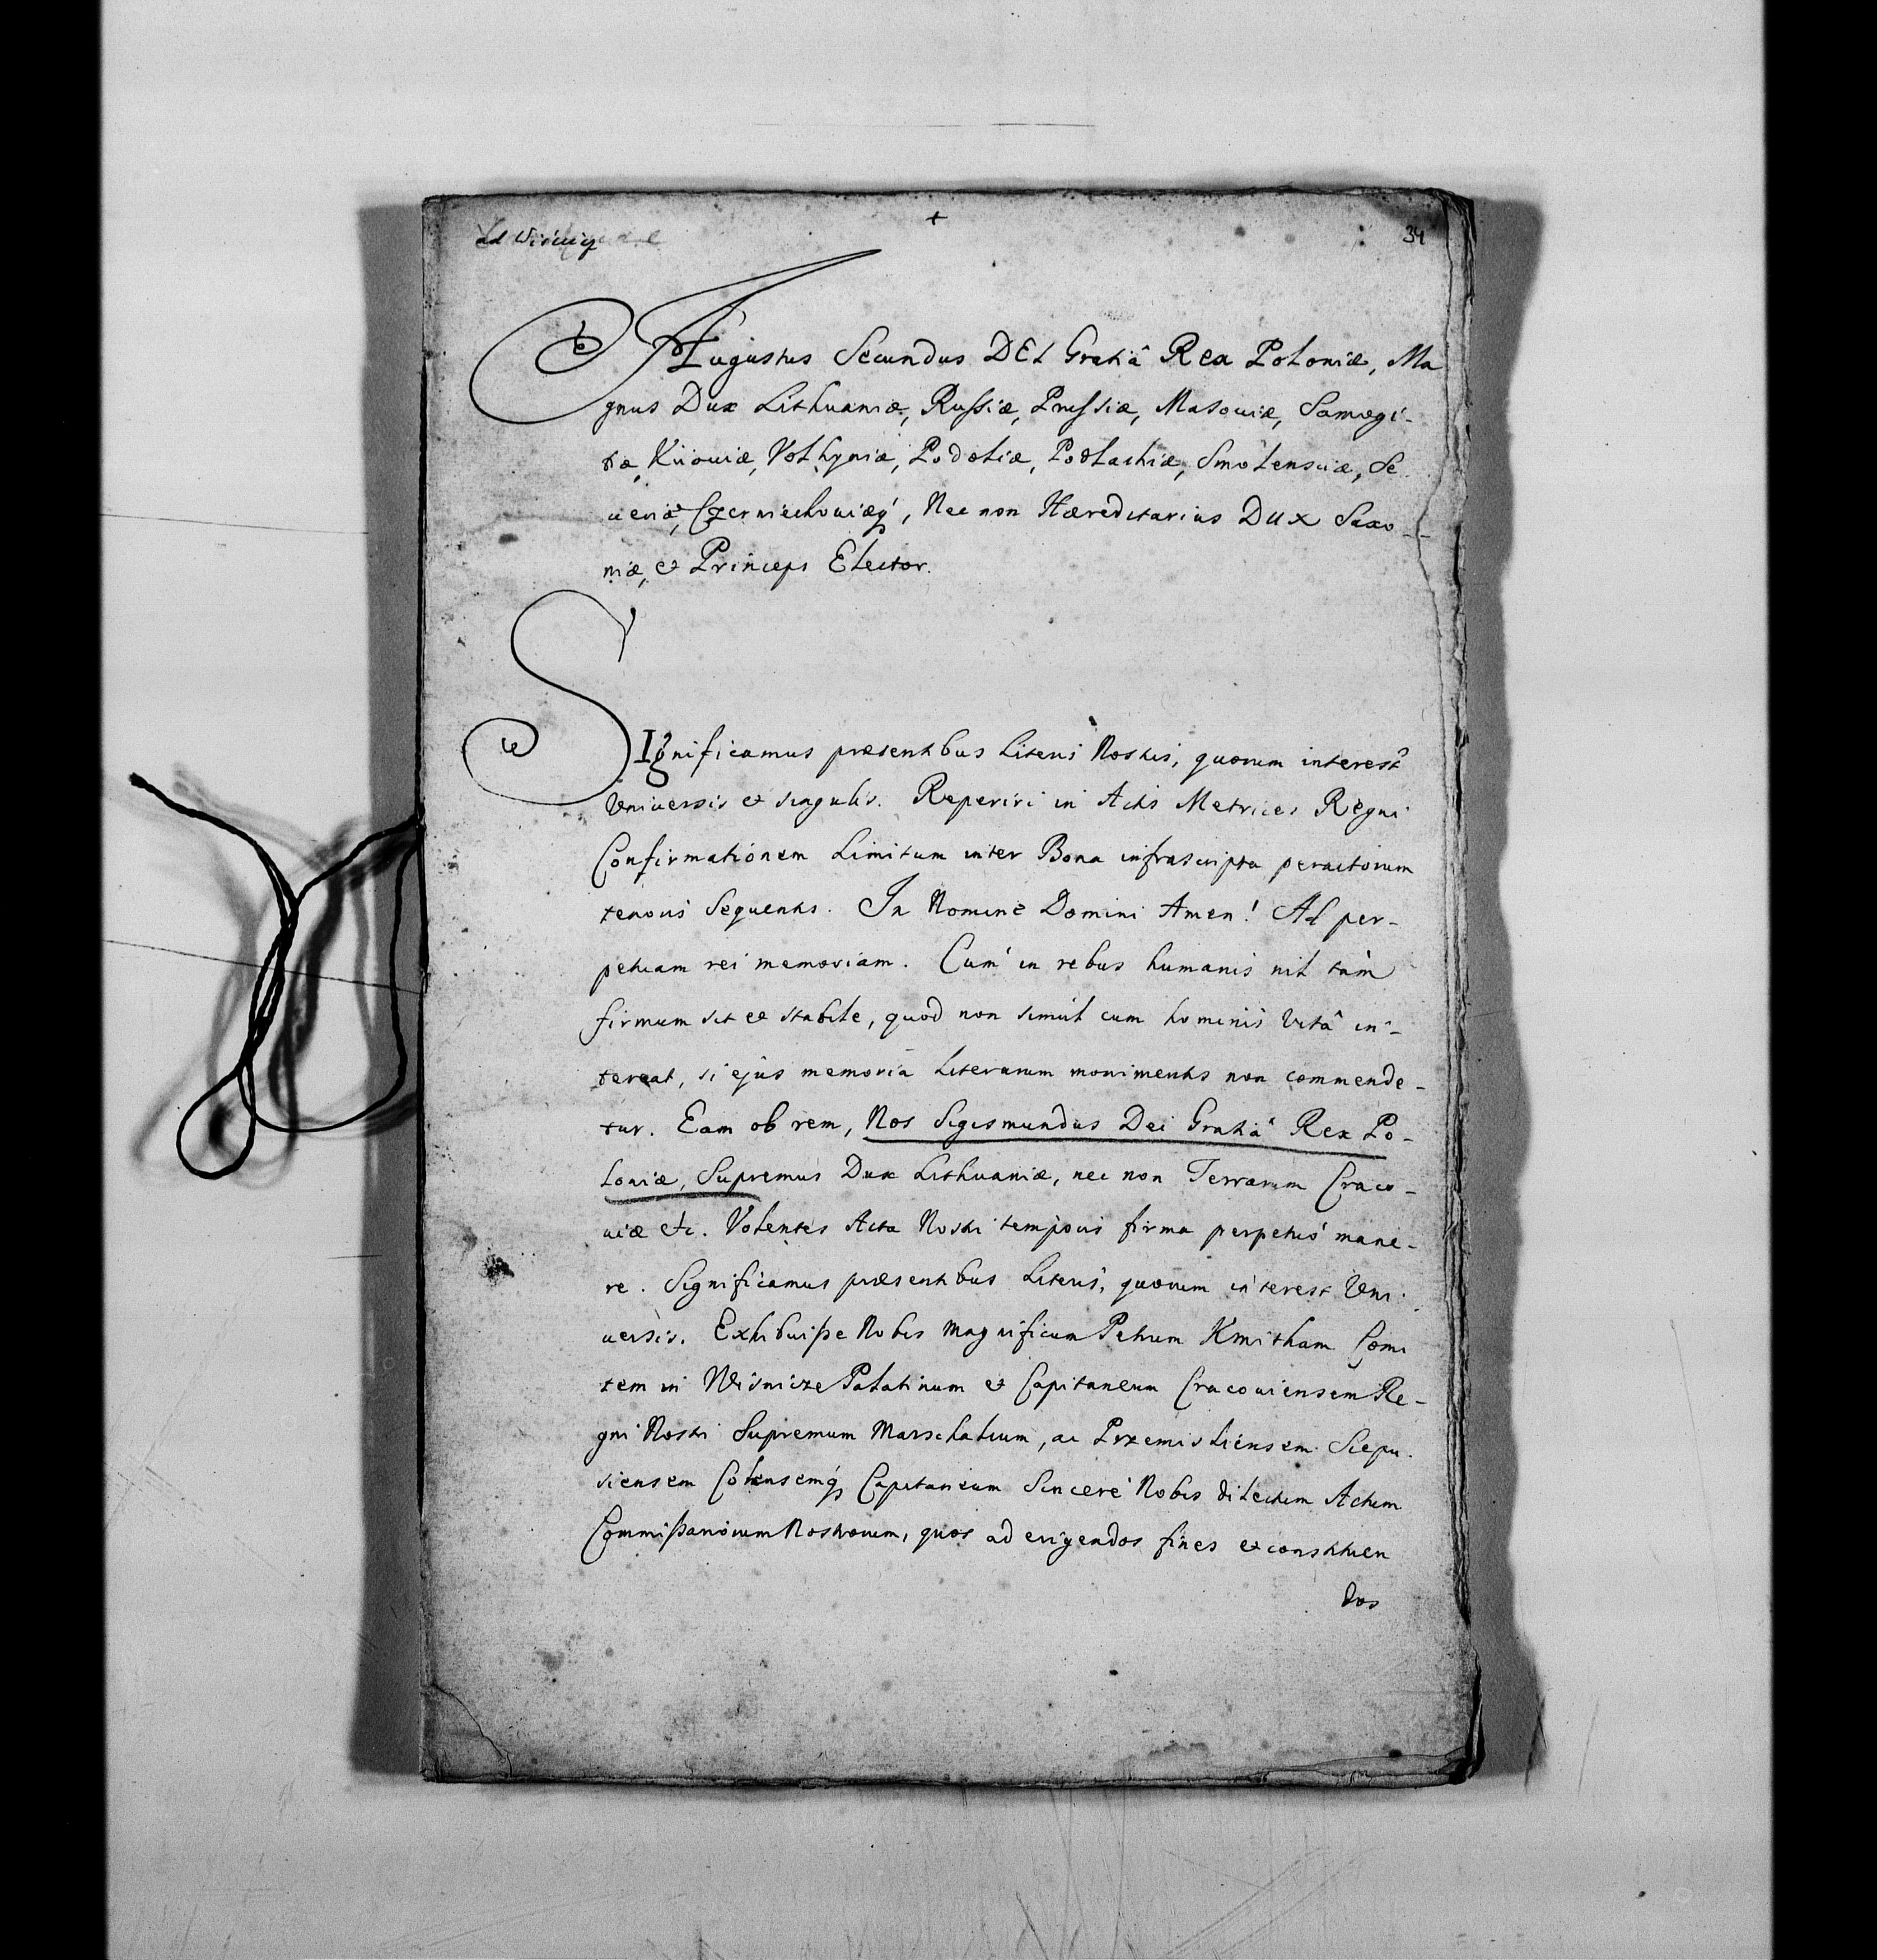 +
34
Augustus Secundus DEI Gratiâ Rex Poloniæ, Ma
gnus Dux Lithuaniæ, Russiæ, Prussiæ, Masoviæ, Samogi-
tiæ, Kiioviæ, Volhyniæ, Podoliæ, Podlachiæ, Smolensciæ, Se
veriæ, Czerniechoviæq́, Nec non Hæreditarius DUX Saxo-
niæ, et Princeps Elector.
SIgnificamus præsentibus Literis Nostris, quorum interest
Universis et singulis. Reperiri in Actis Metrices Regni
Confirmationem Limitum inter Bona infrascripta peractorum
tenoris sequentis. In Nomine Domini Amen! Ad per-
petuam rei memoriam. Cum in rebus humanis nil tàm
firmum sit et stabile, quod non simul cum hominis vitâ in-
tereat, si ejus memoria literarum monimentis non commende-
tur. Eam ob rem, Nos Sigismundus Dei Gratiâ Rex Po-
loniæ, Supremus Dux Lithuaniæ, nec non Terrarum Craco-
viæ etc. Volentes Acta Nostri temporis firma perpetuò mane-
re. Significamus præsentibus Literis, quorum interest Uni
versis. Exhibuiße Nobis Magnificum Petrum Kmitham Comi
tem in Wisnicze Palatinum et Capitaneum Cracoviensem Re-
gni Nostri Supremum Marschalcum, ac Przemisliensem Scepu-
siensem Colensemq́ Capitaneum Sincerè Nobis dilectum Actum
Commißariorum Nostrorum, quos ad erigendos fines et constituen
dos